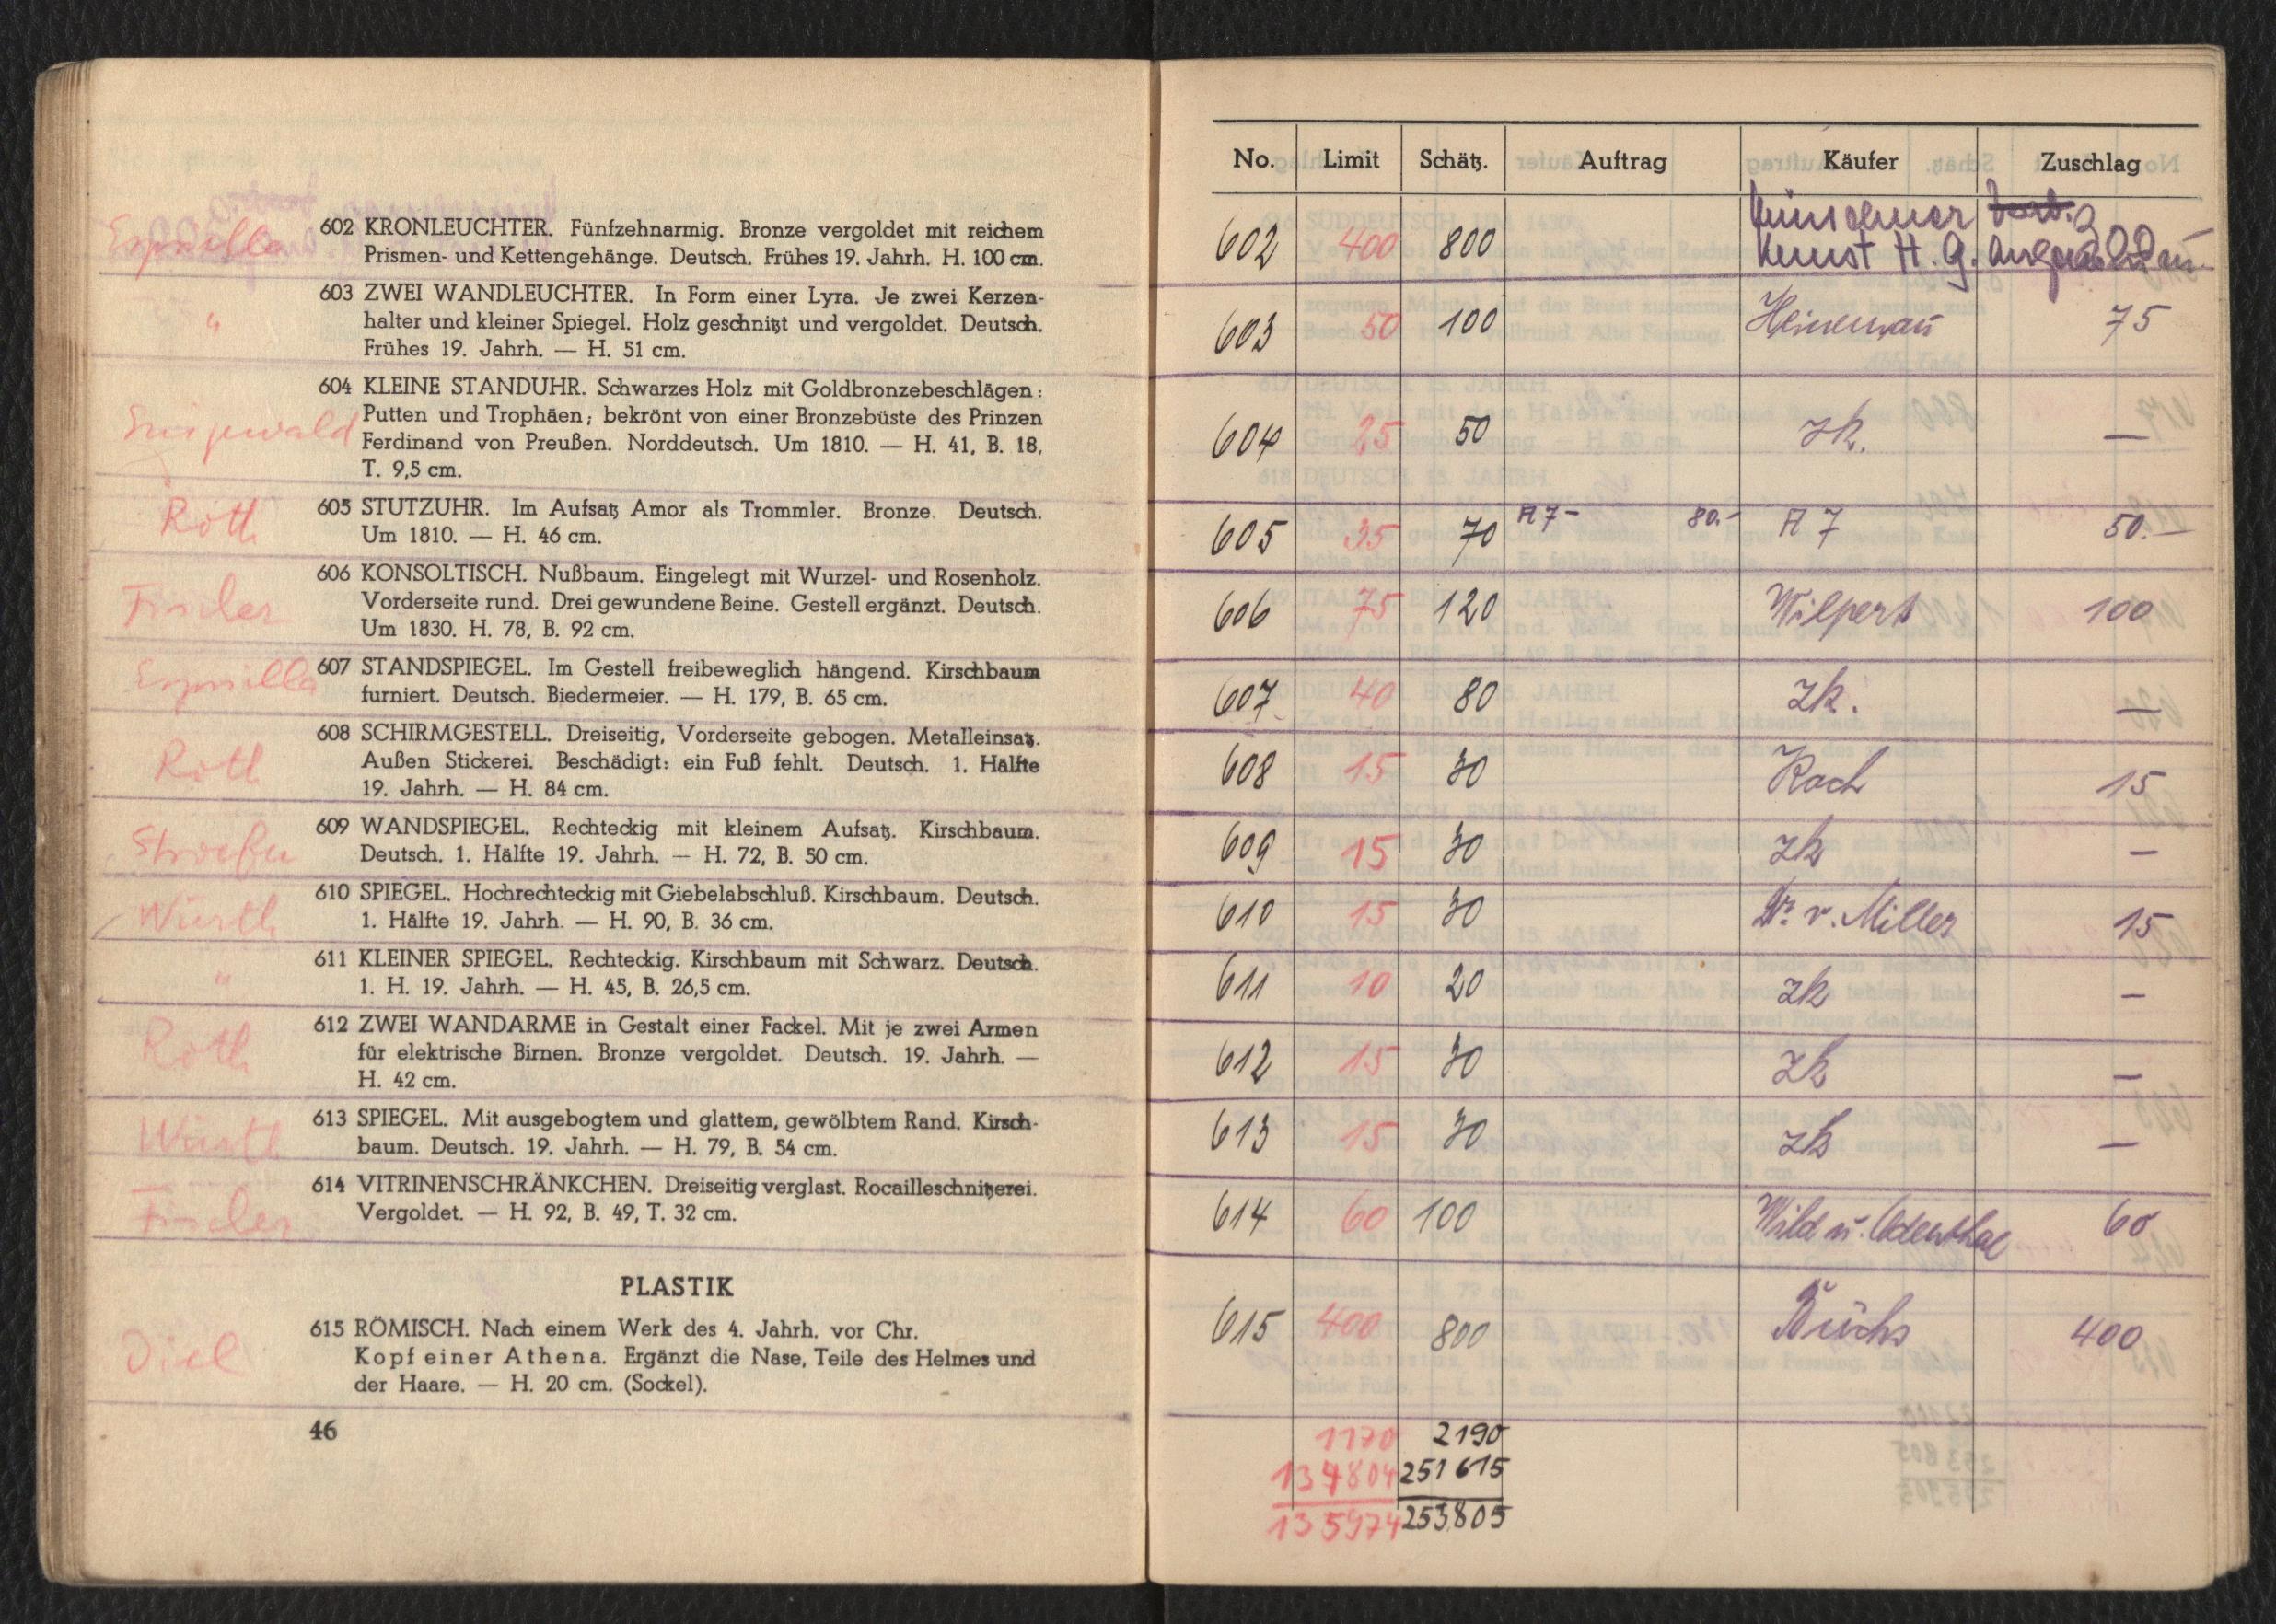 602 KRONLEUCHTER. Fünfzehnarmig. Bronze vergoldet mit reichem
Prismen- und Kettengehänge. Deutsch. Frühes 19. Jahrh. H. 100 cm.
"
603 ZWEI WANDLEUCHTER. In Form einer Lyra. Je zwei Kerzen-
halter und kleiner Spiegel. Holz geschnitzt und vergoldet. Deutsch.
Frühes 19. Jahrh. — H. 51 cm.
604 KLEINE STANDUHR. Schwarzes Holz mit Goldbronzebeschlägen:
Putten und Trophäen; bekrönt von einer Bronzebüste des Prinzen
Ferdinand von Preußen. Norddeutsch. Um 1810. — H. 41, B. 18,
T. 9,5 cm.
Röth
605 STUTZUHR. Im Aufsatz Amor als Trommler. Bronze. Deutsch.
Um 1810. — H. 46 cm.
Fischer
606 KONSOLTISCH. Nußbaum. Eingelegt mit Wurzel- und Rosenholz.
Vorderseite rund. Drei gewundene Beine. Gestell ergänzt. Deutsch.
Um 1830. H. 78, B. 92 cm.
607 STANDSPIEGEL. Im Gestell freibeweglich hängend. Kirschbaum
furniert. Deutsch. Biedermeier. — H. 179, B. 65 cm.
Röth
608 SCHIRMGESTELL. Dreiseitig, Vorderseite gebogen. Metalleinsatz.
Außen Stickerei. Beschädigt: ein Fuß fehlt. Deutsch. 1. Hälfte
19. Jahrh. — H. 84 cm.
609 WANDSPIEGEL. Rechteckig mit kleinem Aufsatz. Kirschbaum.
Deutsch. 1. Hälfte 19. Jahrh. — H. 72, B. 50 cm.
Würth
610 SPIEGEL. Hochrechteckig mit Giebelabschluß. Kirschbaum. Deutsch.
1. Hälfte 19. Jahrh. — H. 90, B. 36 cm.
"
611 KLEINER SPIEGEL. Rechteckig. Kirschbaum mit Schwarz. Deutsch.
1. H. 19. Jahrh. — H. 45, B. 26,5 cm.
Röth
612 ZWEI WANDARME in Gestalt einer Fackel. Mit je zwei Armen
für elektrische Birnen. Bronze vergoldet. Deutsch. 19. Jahrh. —
H. 42 cm.
Würth
613 SPIEGEL. Mit ausgebogtem und glattem, gewölbtem Rand. Kirsch-
baum. Deutsch. 19. Jahrh. — H. 79, B. 54 cm.
Fischer
614 VITRINENSCHRÄNKCHEN. Dreiseitig verglast. Rocailleschnitzerei.
Vergoldet. — H. 92, B. 49, T. 32 cm.
PLASTIK
Diel
615 RÖMISCH. Nach einem Werk des 4. Jahrh. vor Chr.
Kopf einer Athena. Ergänzt die Nase, Teile des Helmes und
der Haare. — H. 20 cm. (Sockel).
46
No. Limit Schätz. Auftrag Käufer Zuschlag
602 400 800 Kunst H. G.
603 50 100 Heinemann 75
604 25 50 zk. —
605 35 70 A 7 - 80.- A 7 50.—
606 75 120 Wilpert 100
607 40 80 zk. —
608 15 30 Koch 15
609 15 30 zk —
610 15 30 Dr. v. Miller 15
611 10 20 zk —
612 15 30 zk —
613 15 30 zk —
614 60 100 Wild u. Odenthal 60
615 400 800 400
1170 2190
134804 251615
135974 253805